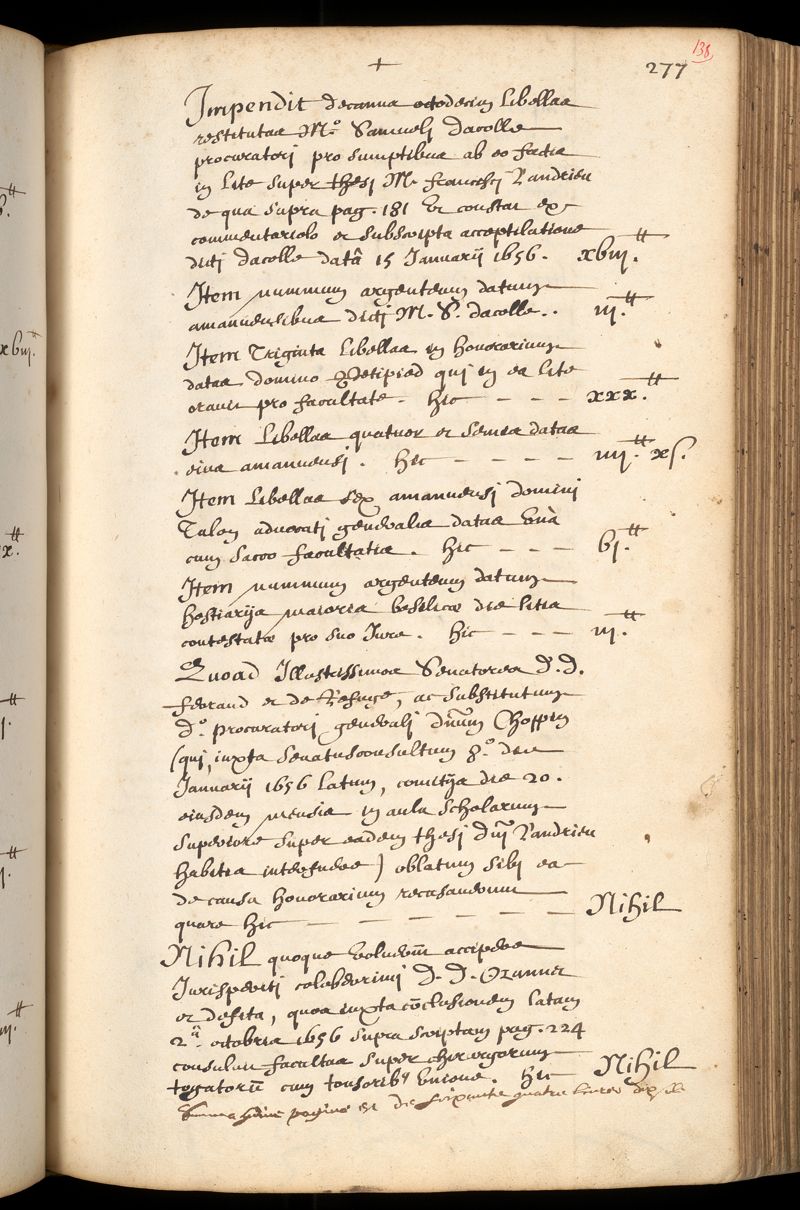 +
277
138
Impendit decanus octodecim libellas
restitutas M.º Samueli Dacolle
procuratori pro sumptibus ab eo factis
in lite super thesi M. Francisci Landrieu
de qua supra pag. 181 Et constat ex
commentariolo et subscripta acceptilatione
dicti Dacolle datâ 15 Januarij 1656. xviij.tt
Item nummum argenteum datum
amanuensibus dicti M. S. Dacolle.. iij.tt
Item Triginta libellas in honorarium
datas domino qui in ea lite
oravit pro facultate. hic - - - xxx.tt
Item libellas quatuor et semis datas
eius amanuensi. hic - - - - iiij.tt xs.
Item libellas sex amanuensi domini
Talon advocati generalis datas unà
cum sacco facultatis. hic - - - vj.tt
Item nummum argenteum datum
hostiarijs maioris basilicæ die litis
contestatæ pro suo Jure. hic - - - iij.tt
Quoad Illustrissimos Senatores D. D.
Ferrand et de Refuge, ac substitutum
D.º procuratori generali dnūm Choppin
(qui, iuxta Senatusconsultum 8.º die
Januarij 1656 latum, comitijs die 20.
eiusdem mensis in aula scholarum
superiore super eadem thesi dnj Landrieu
habitis interfuere) oblatum sibi ea
de causa honorarium recusaverunt
quare hic - - - - - - Nihil
Nihil quoque voluerūt accipere
Jurisperiti celeberrimi D. D. Ozannet
et Defita, quos iuxta cōclusionem latam
2.ª octobris 1656 supra scriptam pag. 224
consuluit facultas super chirurgorum
togatorū cum tonsoribꝰ unione. hic Nihil
Summa pagine est de soixante quatre livres dix s.